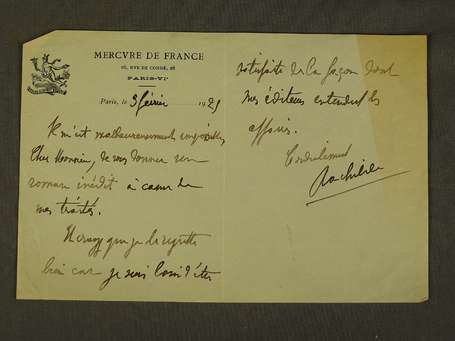 MERCVRE DE FRANCE
26, RVE DE CONDÉ, 26
PARIS-VIe
Paris, le 3 février 1921
Il m'est malheureusement impossible,
Cher Monsieur, de vous donner un
roman inédit à cause de
mes traités.
Et croyez que je le regrette
bien car je suis loin d'être
satisfaite de la façon dont
mes éditeurs entendent les
affaires.
Cordialement
Rachilde